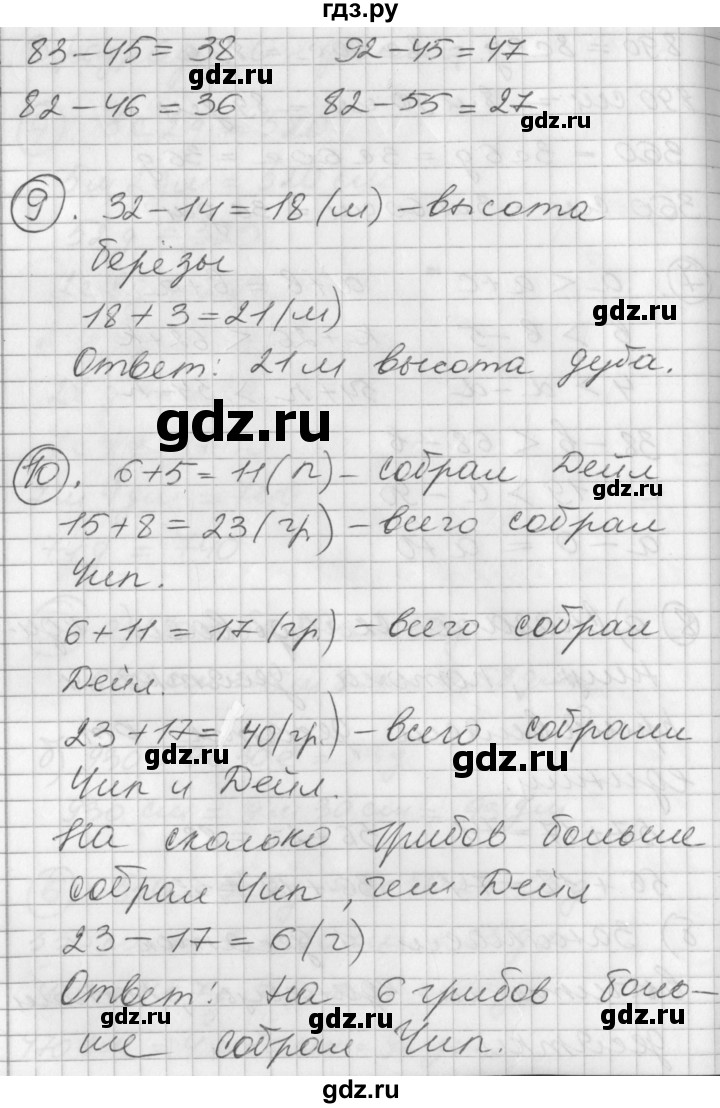 гдз.ру
83-45=38 92-45=47
gdz.ru
82-46=36 82-55=27
gdz.ru
9. 32-14=18(м)-высота
берёзы
18+3=21(м)
gdz.ru
Ответ: 21м высота дуба.
gdz.ru
10. 6+5=11(п)-собрал Дейл
gdz.ru
15+8=23(гр)-всего собрал
Чип.
6+11=17(гр)-всего собрал
Дейл.
23+17=40(гр.)-всего собрали
gdz.ru gdz.ru
Чип и Дейл.
На сколько грибов больше
собрал Чип, чем Дейл
23-17=6(г)
Ответ: на 6 грибов боль-
gdz.ru gdz.ru gdz.ru gdz.ru
ше собрал Чип.
gdz.ru